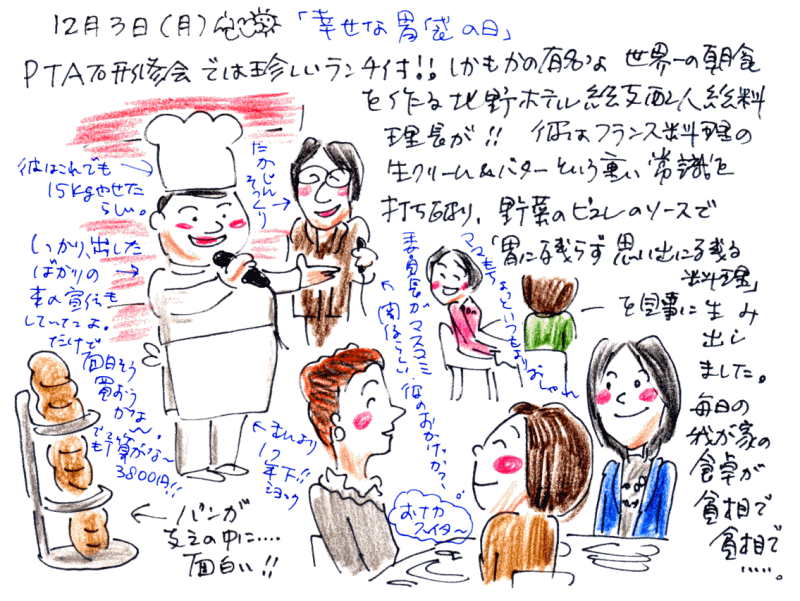 12月3日(月) 「幸せな胃袋の日」
PTA研修会では珍しいランチ付!! しかもかの有名な 世界一の朝食
を作る北野ホテル総支配人総料
理長が!! 彼はフランス料理の
生クリーム&バターという重い常識を
打ち破り、野菜のピュレのソースで
「胃に残らず思い出に残る
料理」
を見事に生み
出し
ました。
毎日の
我が家の
食卓が
貧相で
貧相で
……。
彼はこれでも
15kgやせた
らしい。
たかじん
そっくり
しっかり、出した
ばかりの
本の宣伝も
していたよ。
だけど
面白そう
買おう
かな
〜〜。
でも
3800円!!
ママもちょっといつもよりおしゃれ
委員長がマスコミ
関係らしい 彼のおかげか?、。
私より
1つ
年下!!
ショック
おなか
スイタ〜
パンが
支えの中に‥‥
面白い!!